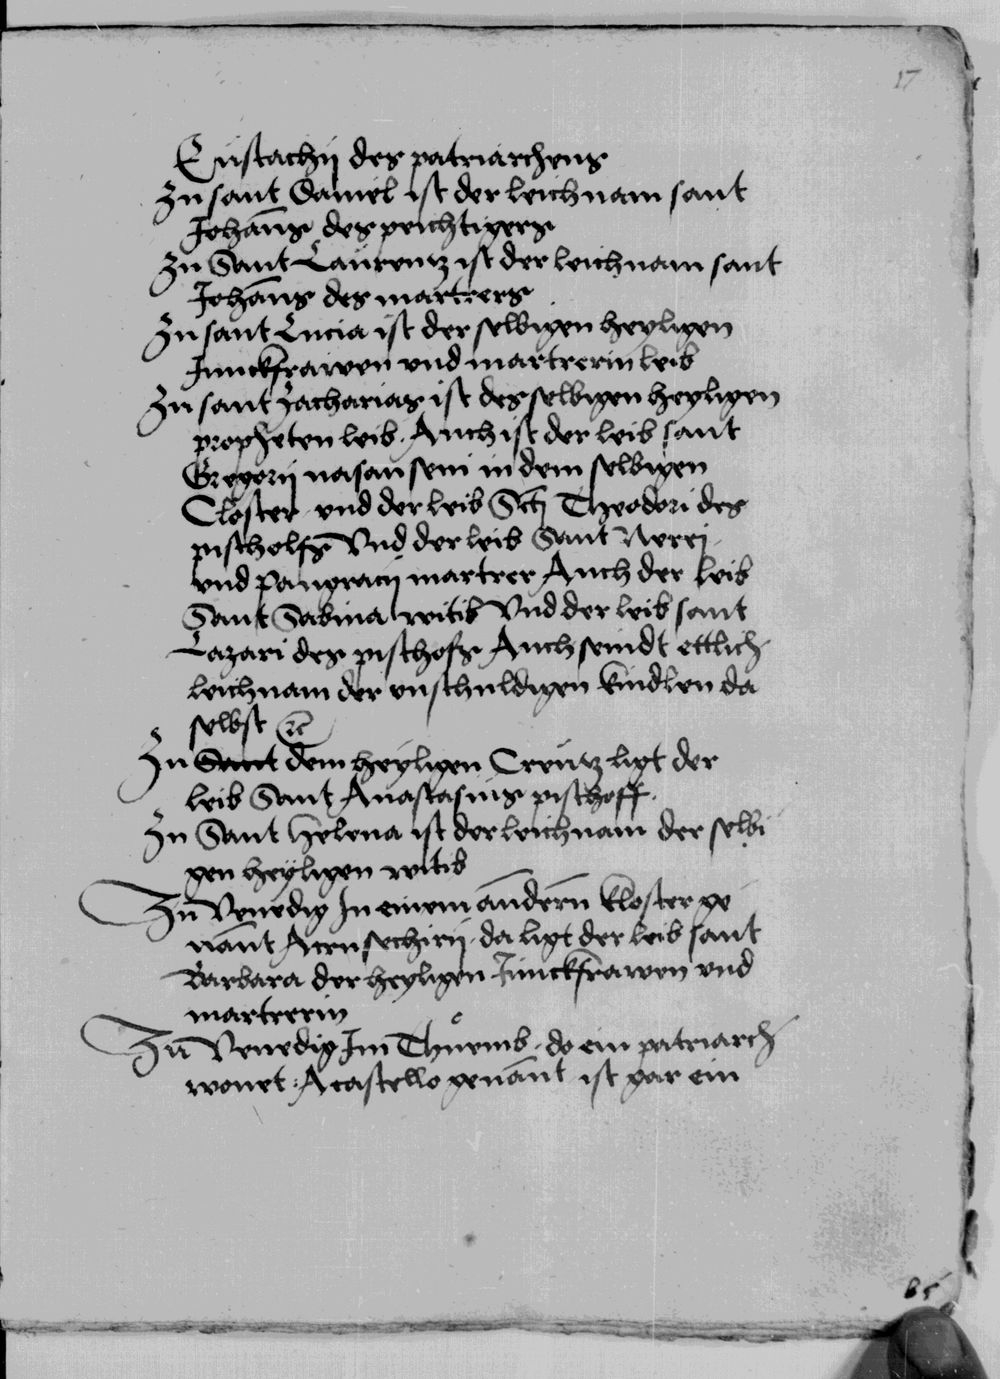 17
Eustachij des patriarchens
Zu sant Daniel ist der leichnam sant
Johans des peichtigers
Zu Sant Laurentz ist der leichnam sant
Johans des martrers
Zu sant Lucia ist der selbigen heyligen
Junckfrawen vnd martrerin leib
Zu sant Zacharias ist des selbigen heyligen
propheten leib. Auch ist der leib sant
Gregorij nasanseni in dem selbigen
Closter vnd der leib Scti Theodori des
pischolfs Vnd der leib Sant Nerei
vnd Pangracij martrer Auch der leib
Sant Sabina witib Vnd der leib sant
Lazari des pischofs Auch seindt ettlich
leichnam der vnschuldigen kindlen da
selbst etc
Zu Sant dem heyligen Creutz ligt der
leib Sant Anastasius pischoff.
Zu Sant Helena ist der leichnam der selbi
gen heyligen witib
Zu Venedig In einem andern kloster ge
nant Acrusechirij. da ligt der leib sant
Barbara der heyligen Junckfrawen vnd
martrerin
Zu Venedig Im Thuemb. do ein patriarch
wonet: Acastello genant ist gar ein